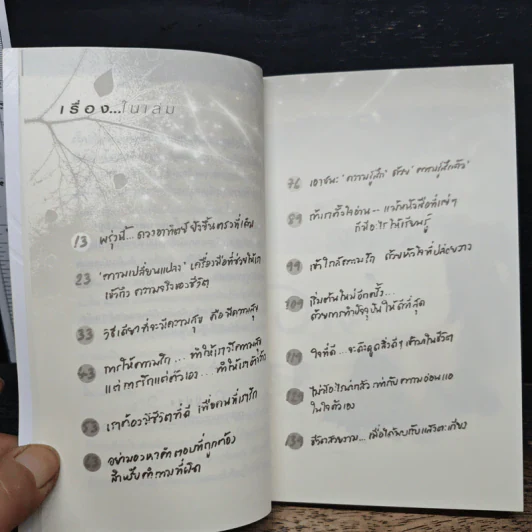 เรื่อง...ในเล่ม
13 พรุ่งนี้... ดวงอาทิตย์ ยังขึ้นตรงที่เดิม
23 "ความเปลี่ยนแปลง" เครื่องมือที่ช่วยให้เรา
เข้าถึง ความจริงของชีวิต
33 วิธีเดียวที่จะมีความสุข คือมีความสุข
43 การให้ความรัก... ทำให้เรามีความสุข
แต่ การรักแต่ตัวเอง... ทำให้เรา
53 เราต้องมีชีวิตที่ดี เพื่อคนที่เรารัก
63 อย่ามองหาคำตอบที่ถูกต้อง
สำหรับคำถามที่ผิด
76 เอาชนะ "ความรู้สึก" ด้วย "ความรู้สึกตัว"
89 ถ้าเราตั้งใจอ่าน -- แม้หนังสือที่แย่ๆ
ก็มีอะไรให้เรียนรู้
99 เข้าใกล้ความรัก ด้วยหัวใจที่ปล่อยวาง
109 เริ่มต้นใหม่อีกครั้ง...
ด้วยการทำปัจจุบันให้ดีที่สุด
119 ใจที่ดี... จะดึงดูดสิ่งดีๆ เข้ามาในชีวิต
129 ไม่มีอะไรน่ากลัว เท่ากับความอ่อนแอ
ในใจตัวเอง
139 ชีวิตสวยงาม... เมื่อได้พบกับแสงตะเกียง